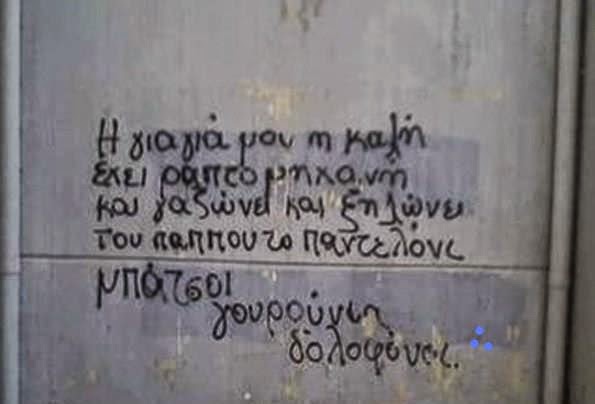 Η γιαγιά μου η καλή
έχει ραπτομηχανή
και γαζώνει και ξηλώνει
του παππου το παντελόνι
μπάτσοι
γουρούνια
δολοφόνοι.